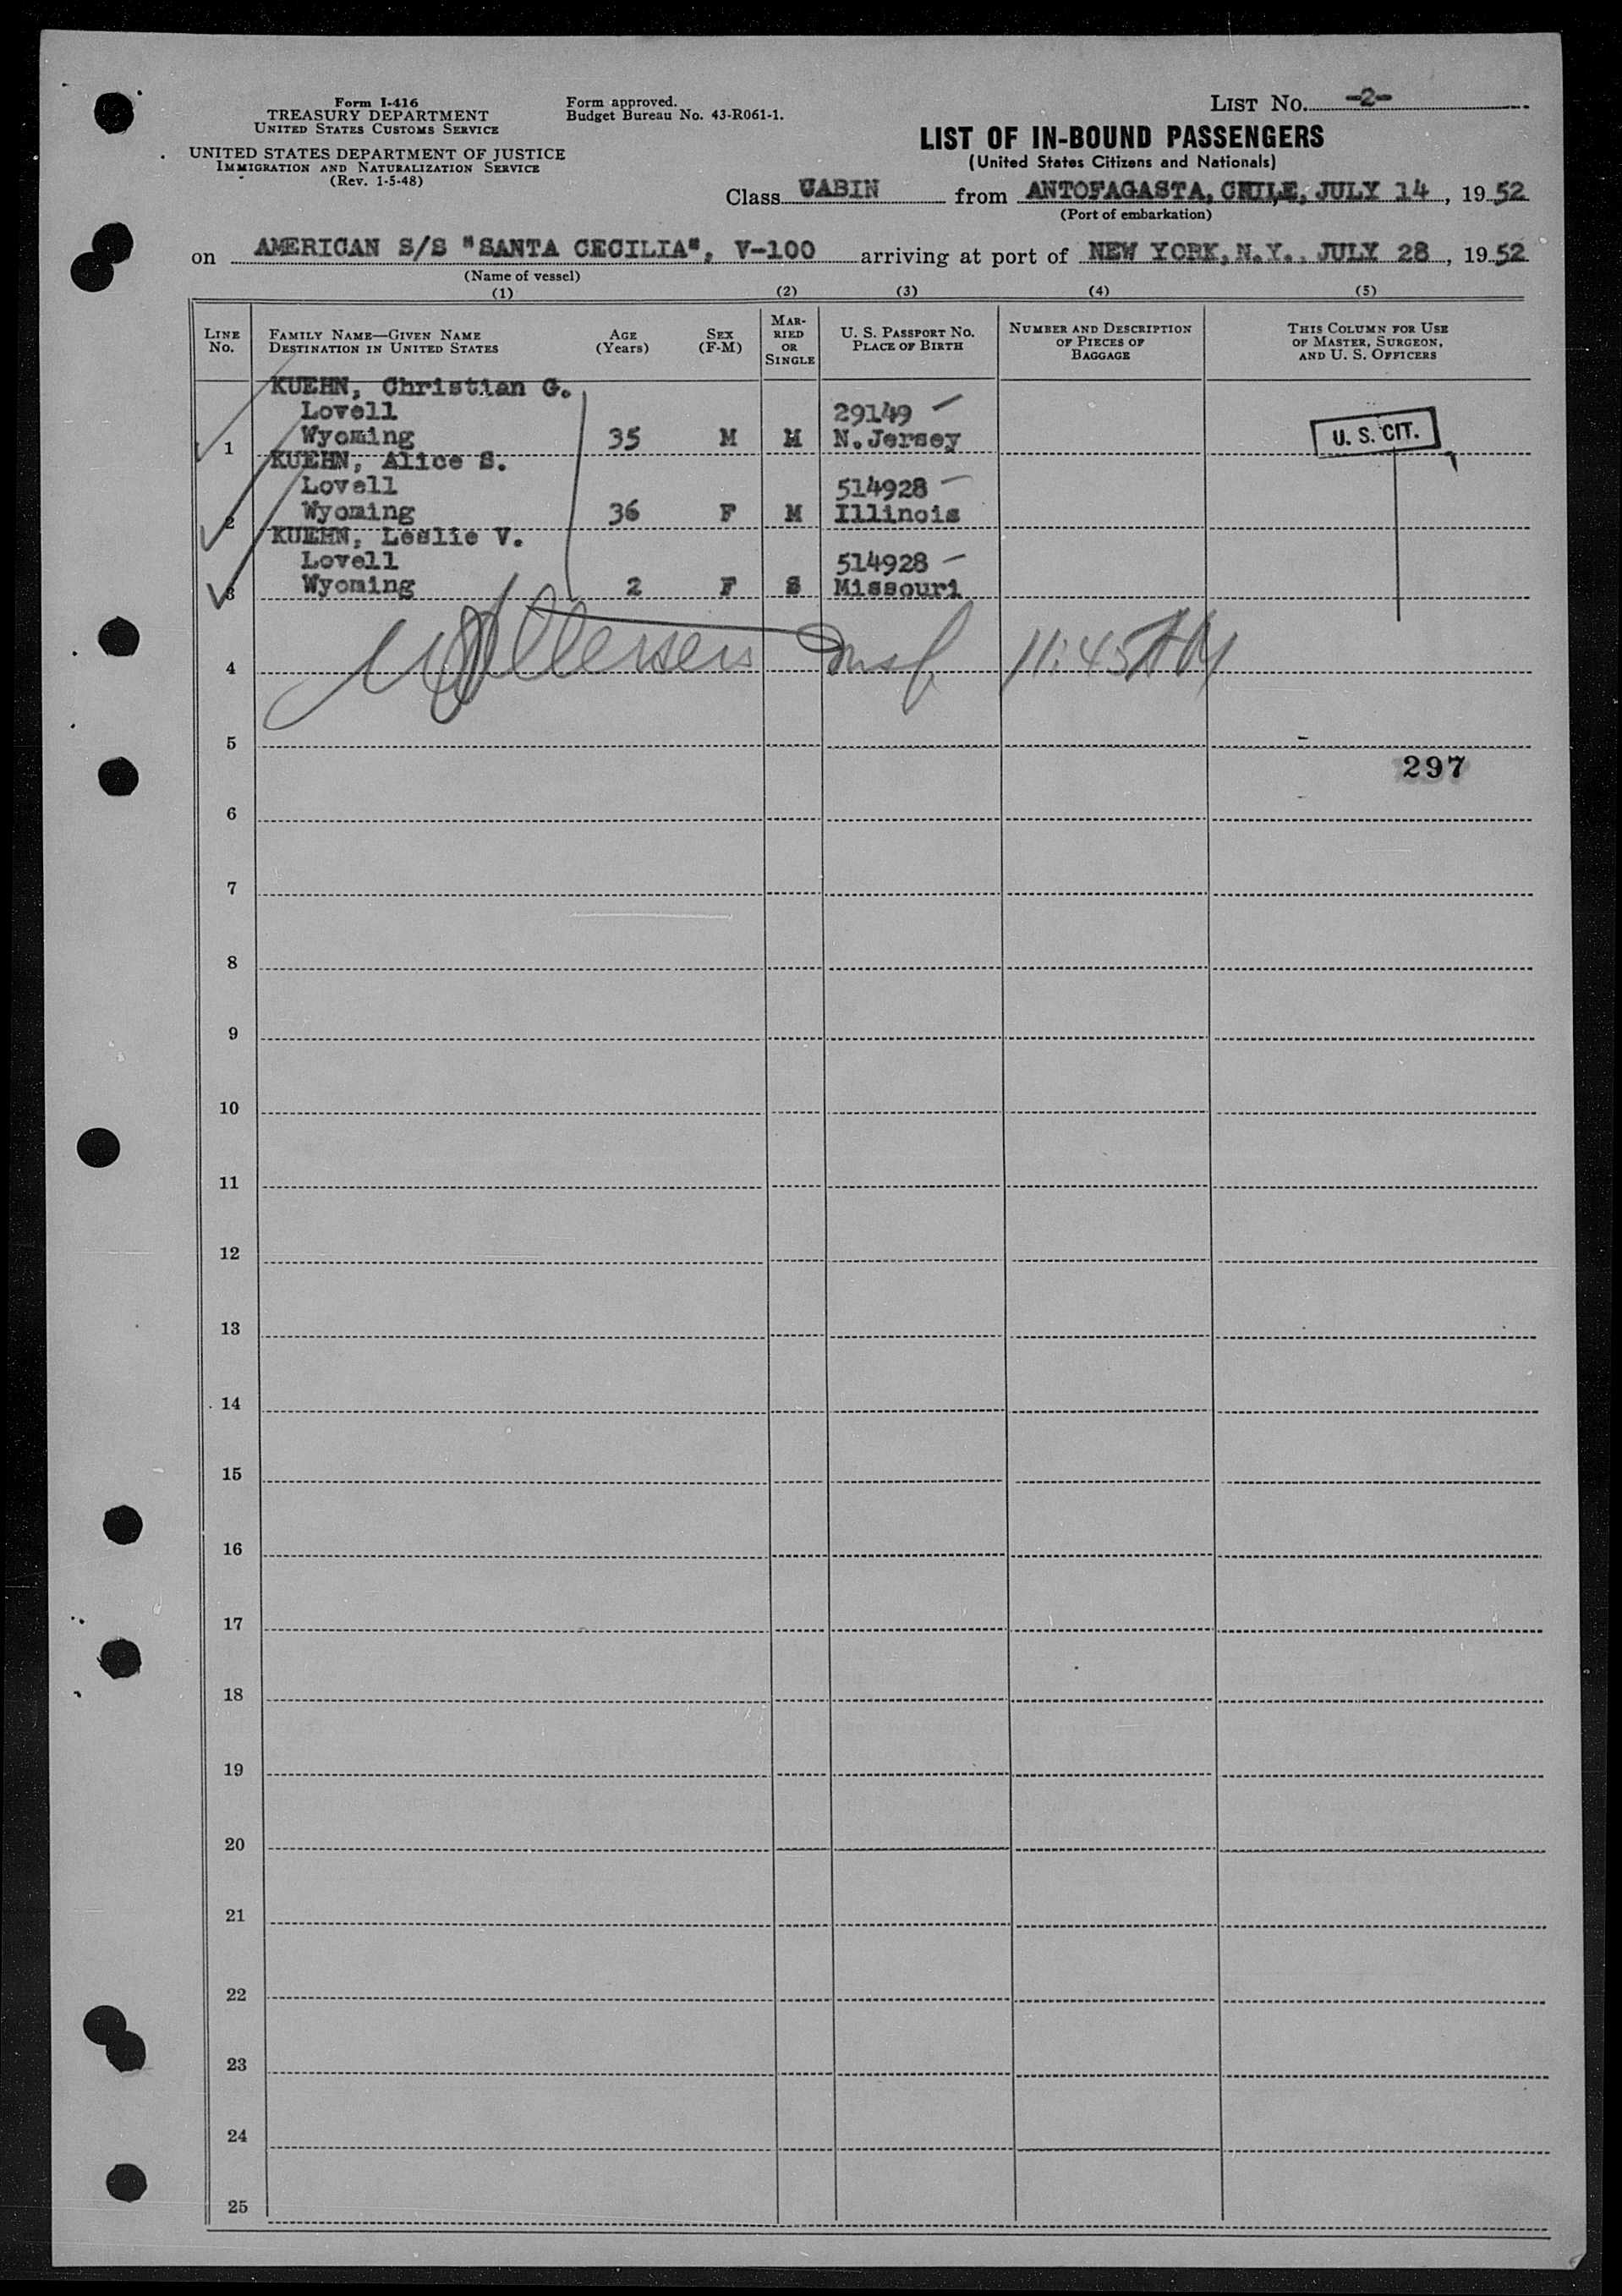 Form I-416
TREASURY DEPARTMENT
UNITED STATES CUSTOMS SERVICE
UNITED STATES DEPARTMENT OF JUSTICE
IMMIGRATION AND NATURALIZATION SERVICE
(Rev. 1-5-48)
Form approved.
Budget Bureau No. 43-R061-1.
LIST No. -2-
LIST OF IN-BOUND PASSENGERS
(United States Citizens and Nationals)
Class CABIN from ANTOFAGASTA, CHILE, JULY 14, 1952
(Port of embarkation)
on AMERICAN S/S "SANTA CECILIA", V-100 arriving at port of NEW YORK, N.Y., JULY 28, 1952
(Name of vessel)
(1) (2) (3) (4) (5)
LINE No.
FAMILY NAME—GIVEN NAME
DESTINATION IN UNITED STATES
AGE (Years)
SEX (F-M)
MARRIED OR SINGLE
U. S. PASSPORT No.
PLACE OF BIRTH
NUMBER AND DESCRIPTION OF PIECES OF BAGGAGE
THIS COLUMN FOR USE OF MASTER, SURGEON, AND U. S. OFFICERS
KUEHN, Christian G.
Lovell 29149
1 Wyoming 35 M M N. Jersey U. S. CIT.
KUEHN, Alice S.
Lovell 514928
2 Wyoming 36 F M Illinois
KUEHN, Leslie V.
Lovell 514928
3 Wyoming 2 F S Missouri
4 11:45 AM
5
297
6
7
8
9
10
11
12
13
14
15
16
17
18
19
20
21
22
23
24
25